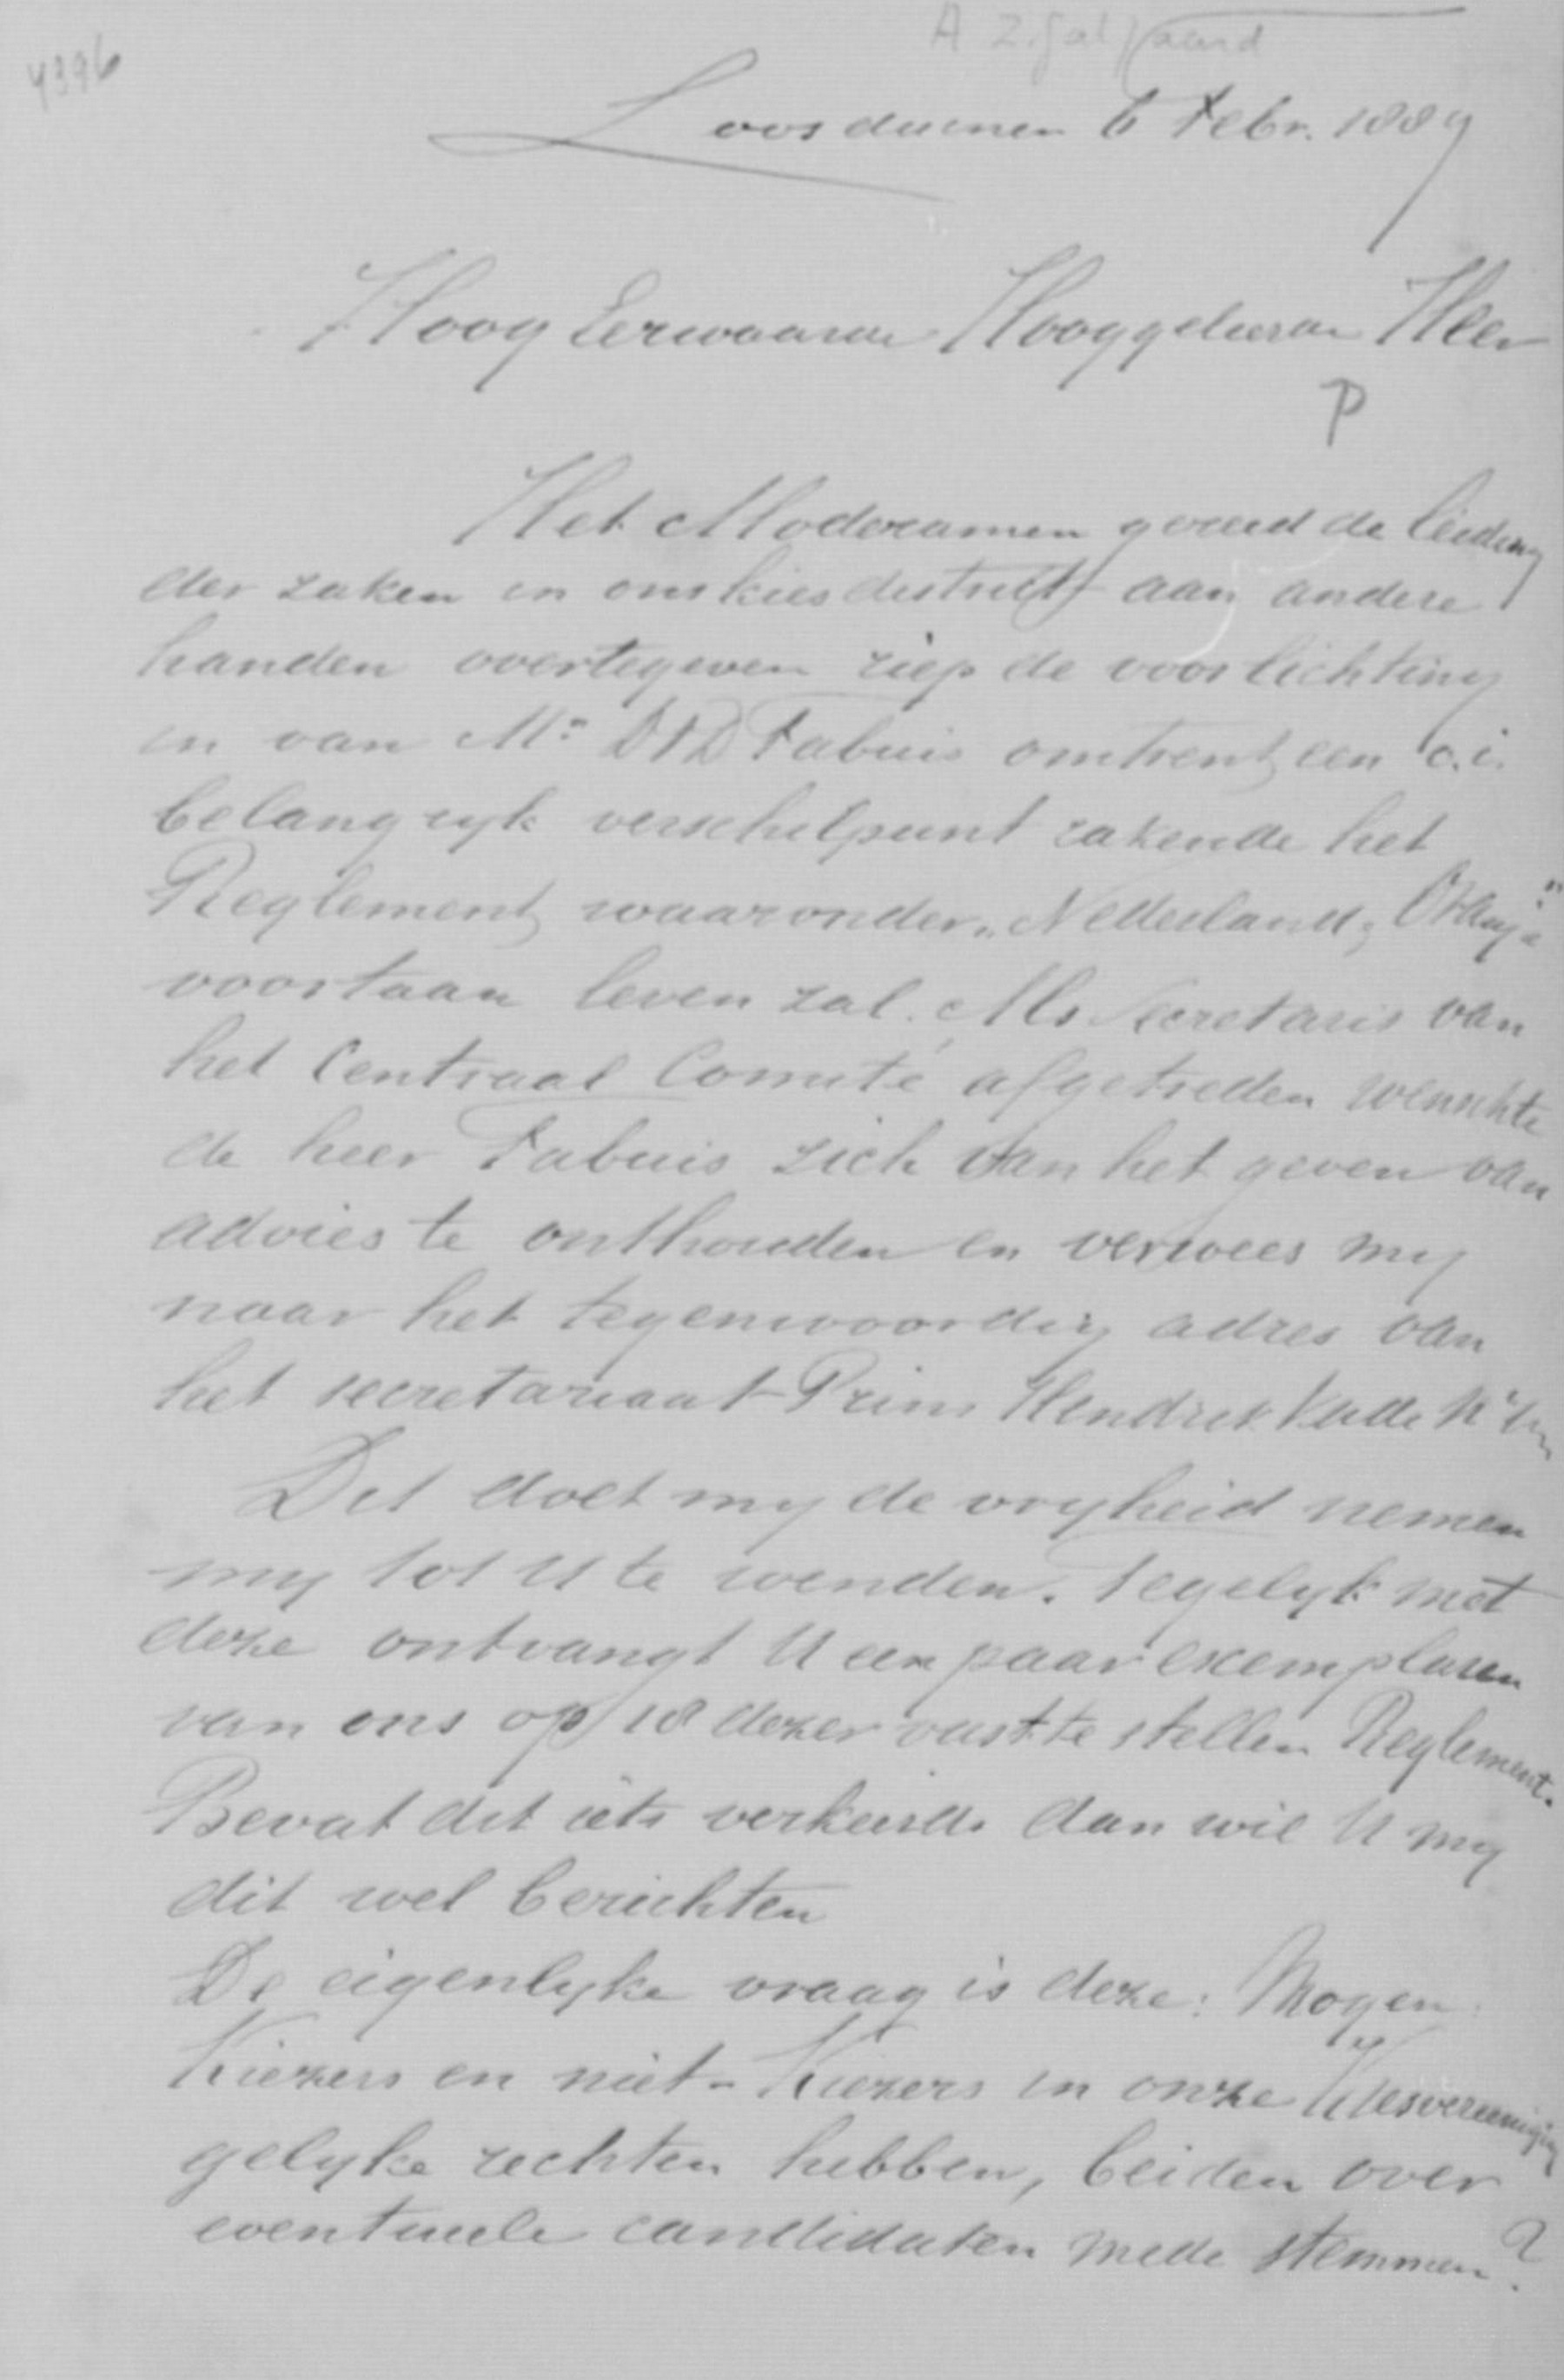 4396
Loosduinen 6 Febr. 1889
HoogEerwaarde Hooggeleerde Heer
P
Het Moderamen de leiding
der zaken in ons kiesdistrict aan andere
handen overtegeven riep de voorlichting
in van Mr. D P D Fabius omtrent een o.i.
belangryk verschilpunt rakende het
Reglement waaronder „Nederland & Oranje"
voortaan leven zal. Als Secretaris van
het Centraal Comité afgetreden wenschte
de heer Fabius zich van het geven van
advies te onthouden en verwees my
naar het tegenwoordig adres van
het secretariaat Prins Hendrik Kade No
Dit doet my de vryheid nemen
my tot U te wenden. Tegelyk met
deze ontvangt U een paar exemplaren
van ons op 18 dezer vast te stellen Reglement.
Bevat dit iets verkeerds dan wil U my
dit wel berichten
De eigenlyke vraag is deze: Mogen
Kiezers en niet-Kiezers in onze Kiesvereeniging
gelyke rechten hebben, beiden over
eventueele candidaten mede stemmen?